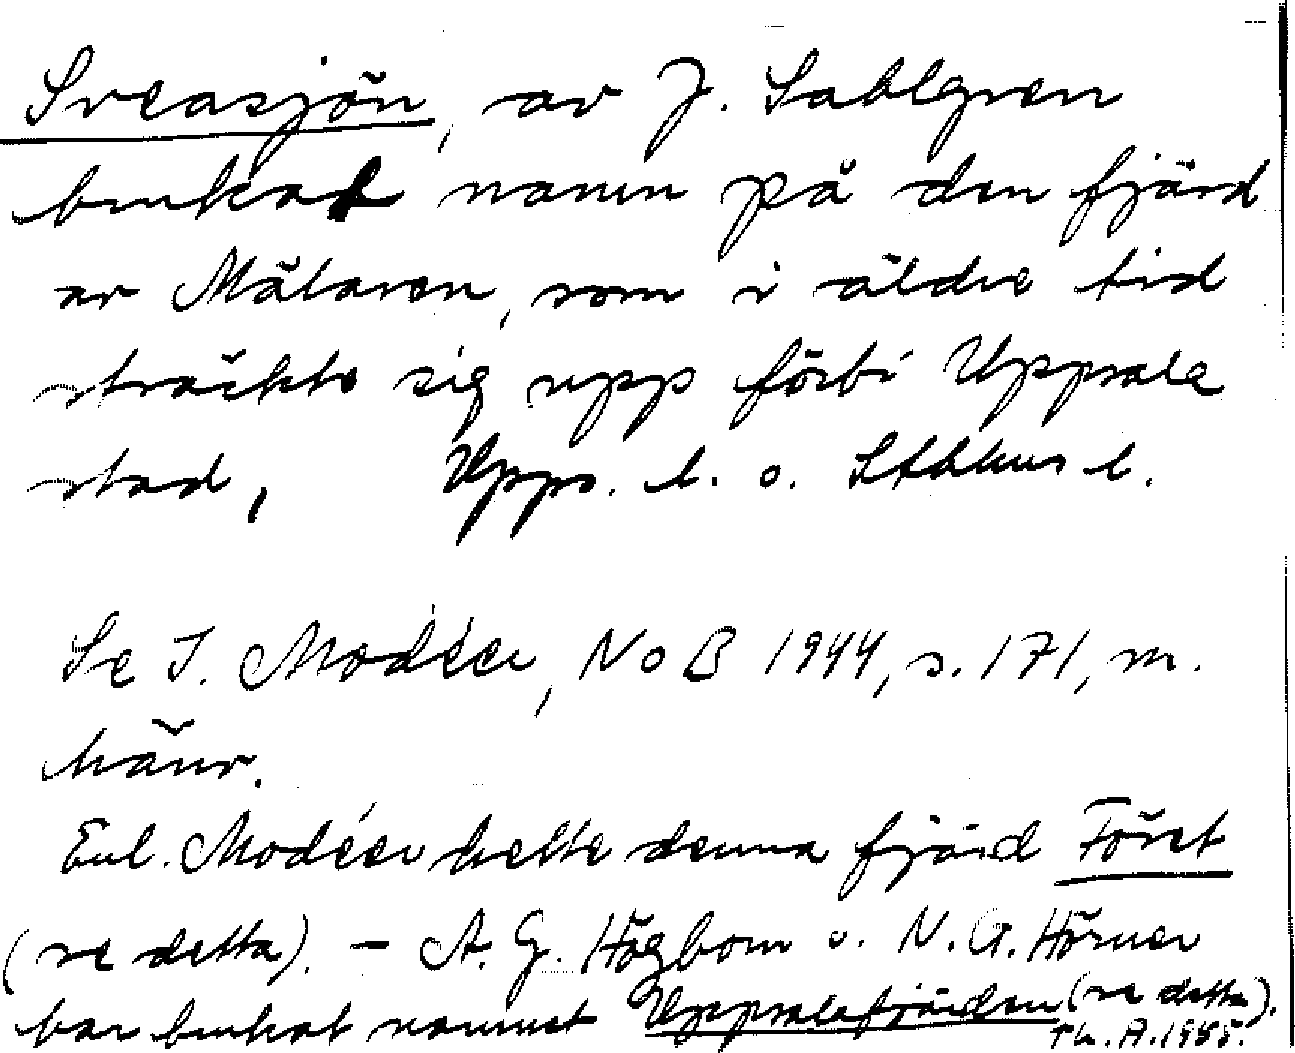 Sveasjön, av J. Sahlgren
brukat namn på den fjärd
av Mälaren, som i äldre tid
sträckte sig upp förbi Uppsala
stad, Upps. l. o. Sthlms l.
Se I. Modéer, NoB 1944, s. 171, m.
hänv.
Enl. Modéer hette denna fjärd Föret
(se detta). – A. G. Högbom o. N. G. Hörner
har brukat namnet Uppsalafjärden (se detta).
Th. A. 1955.